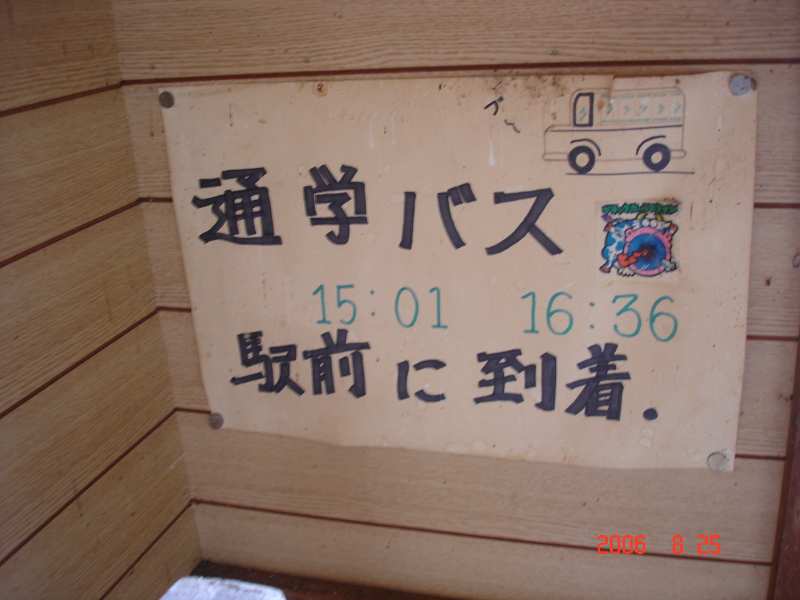 ブ〜
通学バス
15:01 16:36
駅前に到着.
2006 8 25